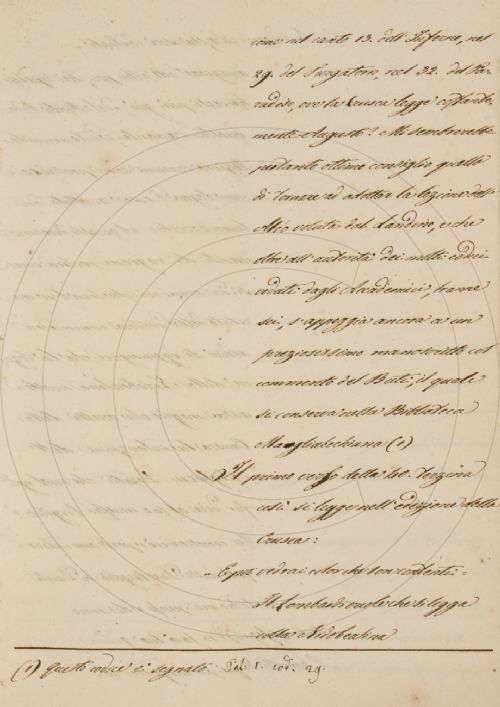 come nel canto 13. dell'Inferno, nel
29. del Purgatorio, nel 32. del Pa-
radiso, ove la Crusca legge costante-
mente Augusti? Mi sembrerebbe
pertanto ottimo consiglio quello
di tornare ad adottar la lezione dell'
Alto voluta dal Landino, e che
oltre all'autorità dei molti codici
veduti dagli Accademici, tranne
sei, s'appoggia ancora a un
preziosissimo manoscritto col
commento del Buti, il quale
si conserva nella Biblioteca
Magliabechiana (1)
Il primo verso della 40. Terzina
così si legge nell'edizione della
Crusca:
E poi vedrai color che son contenti =
Il Lombardi vuole che si legga
colla Nidobeatina
(1) Questo codice è segnato: Pal. 1. cod. 29.